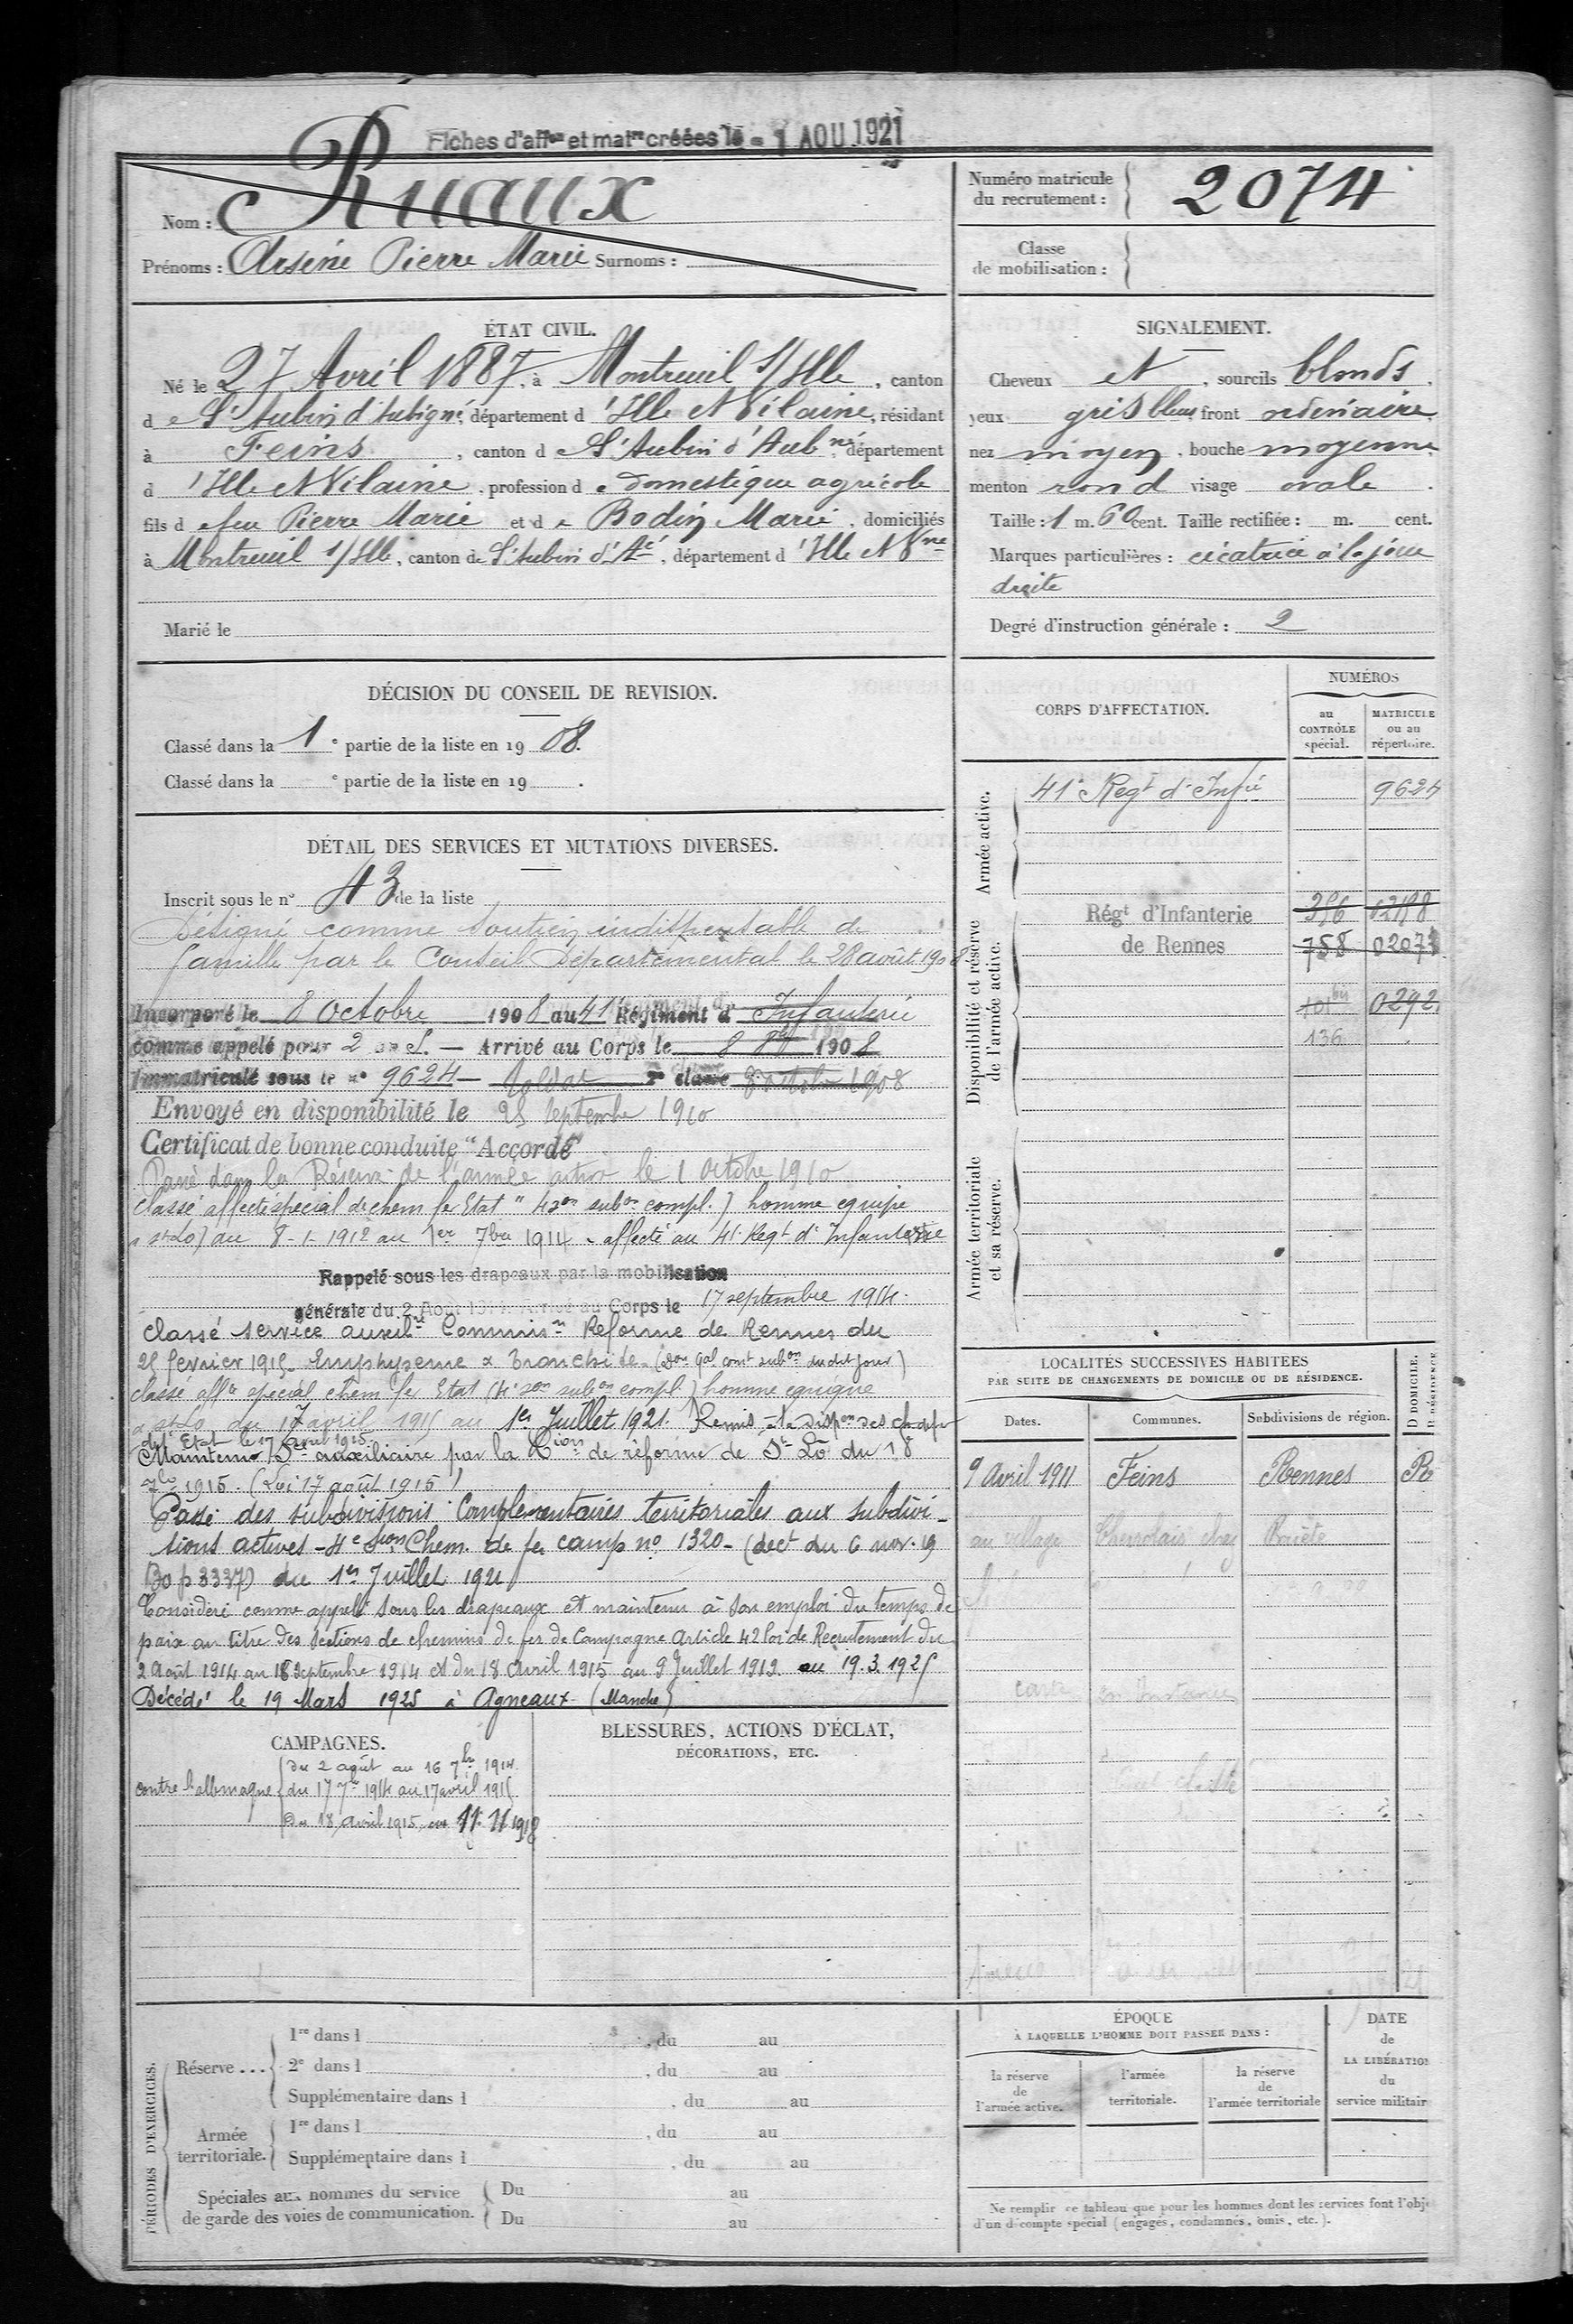 Fiches d'aff<sup>on</sup> et mat<sup>re</sup> créées le - 1 AOU 1921
Nom : Ruaux
Prénoms : Arsène Pierre Marie Surnoms :
Numéro matricule du recrutement : 2074
Classe de mobilisation :
ÉTAT CIVIL.
Né le 27 Avril 1887, à Montreuil s/Ille, canton
de St Aubin d'Aubigné, département d'Ille et Vilaine, résidant
à Feins, canton de St Aubin d'Aubné département
d'Ille et Vilaine, profession de domestique agricole
fils de feu Pierre Marie et de Bodin Marie, domiciliés
à Montreuil s/Ille, canton de St Aubin d'Aé, département d'Ille et Vne
Marié le
SIGNALEMENT.
Cheveux et, sourcils blonds.
yeux gris bleus front ordinaire
nez moyen, bouche moyenne
menton rond visage ovale.
Taille : 1 m. 60 cent. Taille rectifiée : m. cent.
Marques particulières : cicatrice à la joue
droite
Degré d'instruction générale : 2
DÉCISION DU CONSEIL DE REVISION.
Classé dans la 1e partie de la liste en 1908.
Classé dans la e partie de la liste en 19 .
DÉTAIL DES SERVICES ET MUTATIONS DIVERSES.
Inscrit sous le n° 43 de la liste
Désigné comme soutien indispensable de
famille par le Conseil Départemental le 28 août 1908
Incorporé le 8 Octobre 1908 au 41 Régiment d'Infanterie
comme appelé pour 2 ans. — Arrivé au Corps le 8 8bre 1908
Immatriculé sous le n° 9624 — Soldat 2e classe 8 octobre 1908
Envoyé en disponibilité le 25 septembre 1910
Certificat de bonne conduite "Accordé"
Passé dans la Réserve de l'armée active le 1 Octobre 1910
Classé affecté spécial de chem fer Etat " 4 son subon compl.) homme equipe
St Lo) du 8-1-1912 au 1er 7bre 1914 - affecté au 41 Regt d'Infanterie
Rappelé sous les drapeaux par la mobilisation
générale du 2 Août 1914. Arrivé au Corps le 17 septembre 1914.
Classé service auxilre Commison Reforme de Rennes du
25 fevrier 1915. Emphyseme & bronchite. (Don Gal comt subon du dit jour)
classé affté spécial chem fer Etat (4e son subon compl.) homme equipe
à St Lo du 17 avril 1915 au 1er Juillet 1921. Remis à la dispon des ch de fer
de l'Etat le 17 avril 1915
Maintenu Sce auxiliaire par la Cion de réforme de St Lô du 18
7bre 1915. (Loi 17 août 1915)
Passé des subdivisions Complémentaires territoriales aux subdivi-
sions actives - 4e Son Chem. de fer camp no 1320 - (dect du 6 nov. 19
Bo p 3337) du 1er Juillet 1921
Considéré comme appelé sous les drapeaux et maintenu à son emploi du temps de
paix au titre des sections de chemins de fer de Campagne Article 42 loi de Recrutement du
2 Août 1914 au 16 Septembre 1914 et du 18 Avril 1915 au 9 Juillet 1919. au 19.3.1925
Décédé le 19 Mars 1925 à Agneaux (Manche)
CORPS D'AFFECTATION.
NUMÉROS
au CONTRÔLE spécial.
MATRICULE ou au répertoire.
Armée active.
41e Regt d'Infie 9624
Disponibilité et réserve de l'armée active.
Régt d'Infanterie de Rennes
758
136
Armée territoriale et sa réserve.
LOCALITÉS SUCCESSIVES HABITÉES
PAR SUITE DE CHANGEMENTS DE DOMICILE OU DE RÉSIDENCE.
Dates. Communes. Subdivisions de région. D DOMICILE. R RÉSIDENCE
9 Avril 1911 Feins Rennes R
au village
CAMPAGNES.
contre l'allemagne
Du 2 août au 16 7bre 1914.
du 17 7bre 1914 au 17 avril 1915
Du 18 avril 1915 au 11.11 1918
BLESSURES, ACTIONS D'ÉCLAT,
DÉCORATIONS, ETC.
PÉRIODES D'EXERCICES.
Réserve ...
1re dans l , du au
2e dans l , du au
Supplémentaire dans l , du au
Armée territoriale.
1re dans l , du au
Supplémentaire dans l , du au
Spéciales aux hommes du service
de garde des voies de communication.
Du au
Du au
ÉPOQUE
À LAQUELLE L'HOMME DOIT PASSER DANS :
la réserve de l'armée active.
l'armée territoriale.
la réserve de l'armée territoriale
DATE de LA LIBÉRATION du service militair
Ne remplir ce tableau que pour les hommes dont les services font l'obje
d'un décompte spécial (engagés, condamnés, omis, etc.).